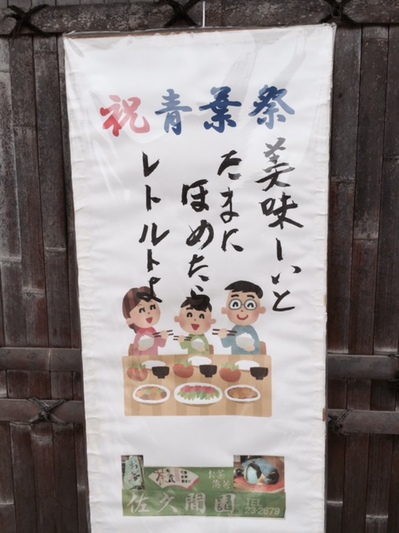 祝青葉祭
美味しいと
たまに
ほめたら
レトルトよ
佐久間園
TEL
23 2679